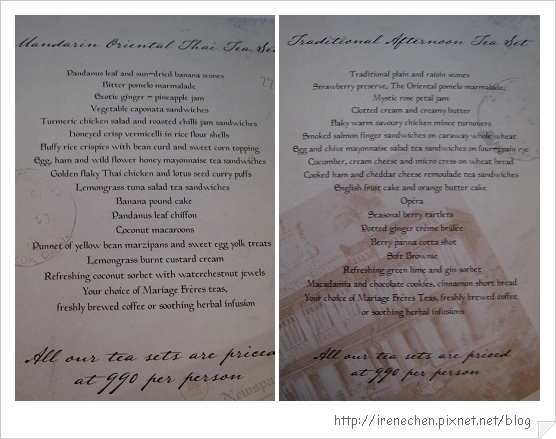 Mandarin Oriental Thai Tea Set
Pandanus leaf and sun-dried banana scones
Bitter pomelo marmalade
Exotic ginger – pineapple jam
Vegetable caponata sandwiches
Turmeric chicken salad and roasted chilli jam sandwiches
honeyed crisp vermicelli in rice flour shells
fluffy rice crispies with bean curd and sweet corn topping
Egg, ham and wild flower honey mayonnaise tea sandwiches
Golden flaky Thai chicken and lotus seed curry puffs
Lemongrass tuna salad tea sandwiches
Banana pound cake
Pandanus leaf chiffon
Coconut macaroons
Punnet of yellow bean marzipans and sweet egg yolk treats
Lemongrass burnt custard cream
Refreshing coconut sorbet with waterchestnut jewels
Your choice of Mariage Frères teas,
freshly brewed coffee or soothing herbal infusion
All our tea sets are priced
at 990 per person
Traditional Afternoon Tea Set
Traditional plain and raisin scones
Strawberry preserve, The Oriental pomelo marmalade,
Mystic rose petal jam
Clotted cream and creamy butter
flaky warm savoury chicken mince turnovers
Smoked salmon finger sandwiches on caraway whole wheat
Egg and chive mayonnaise salad tea sandwiches on four-grain rye
Cucumber, cream cheese and micro cress on wheat bread
Cooked ham and cheddar cheese remoulade tea sandwiches
English fruit cake and orange butter cake
Opéra
Seasonal berry tartlets
Potted ginger crème brûlée
Berry panna cotta shoe
Soft Brownie
Refreshing green lime and gin sorbet
Macadamia and chocolate cookies, cinnamon short bread
Your choice of Mariage Frères Teas, freshly brewed coffee
or soothing herbal infusions
All our tea sets are priced
at 990 per person
http://irenechen.pixnet.net/blog